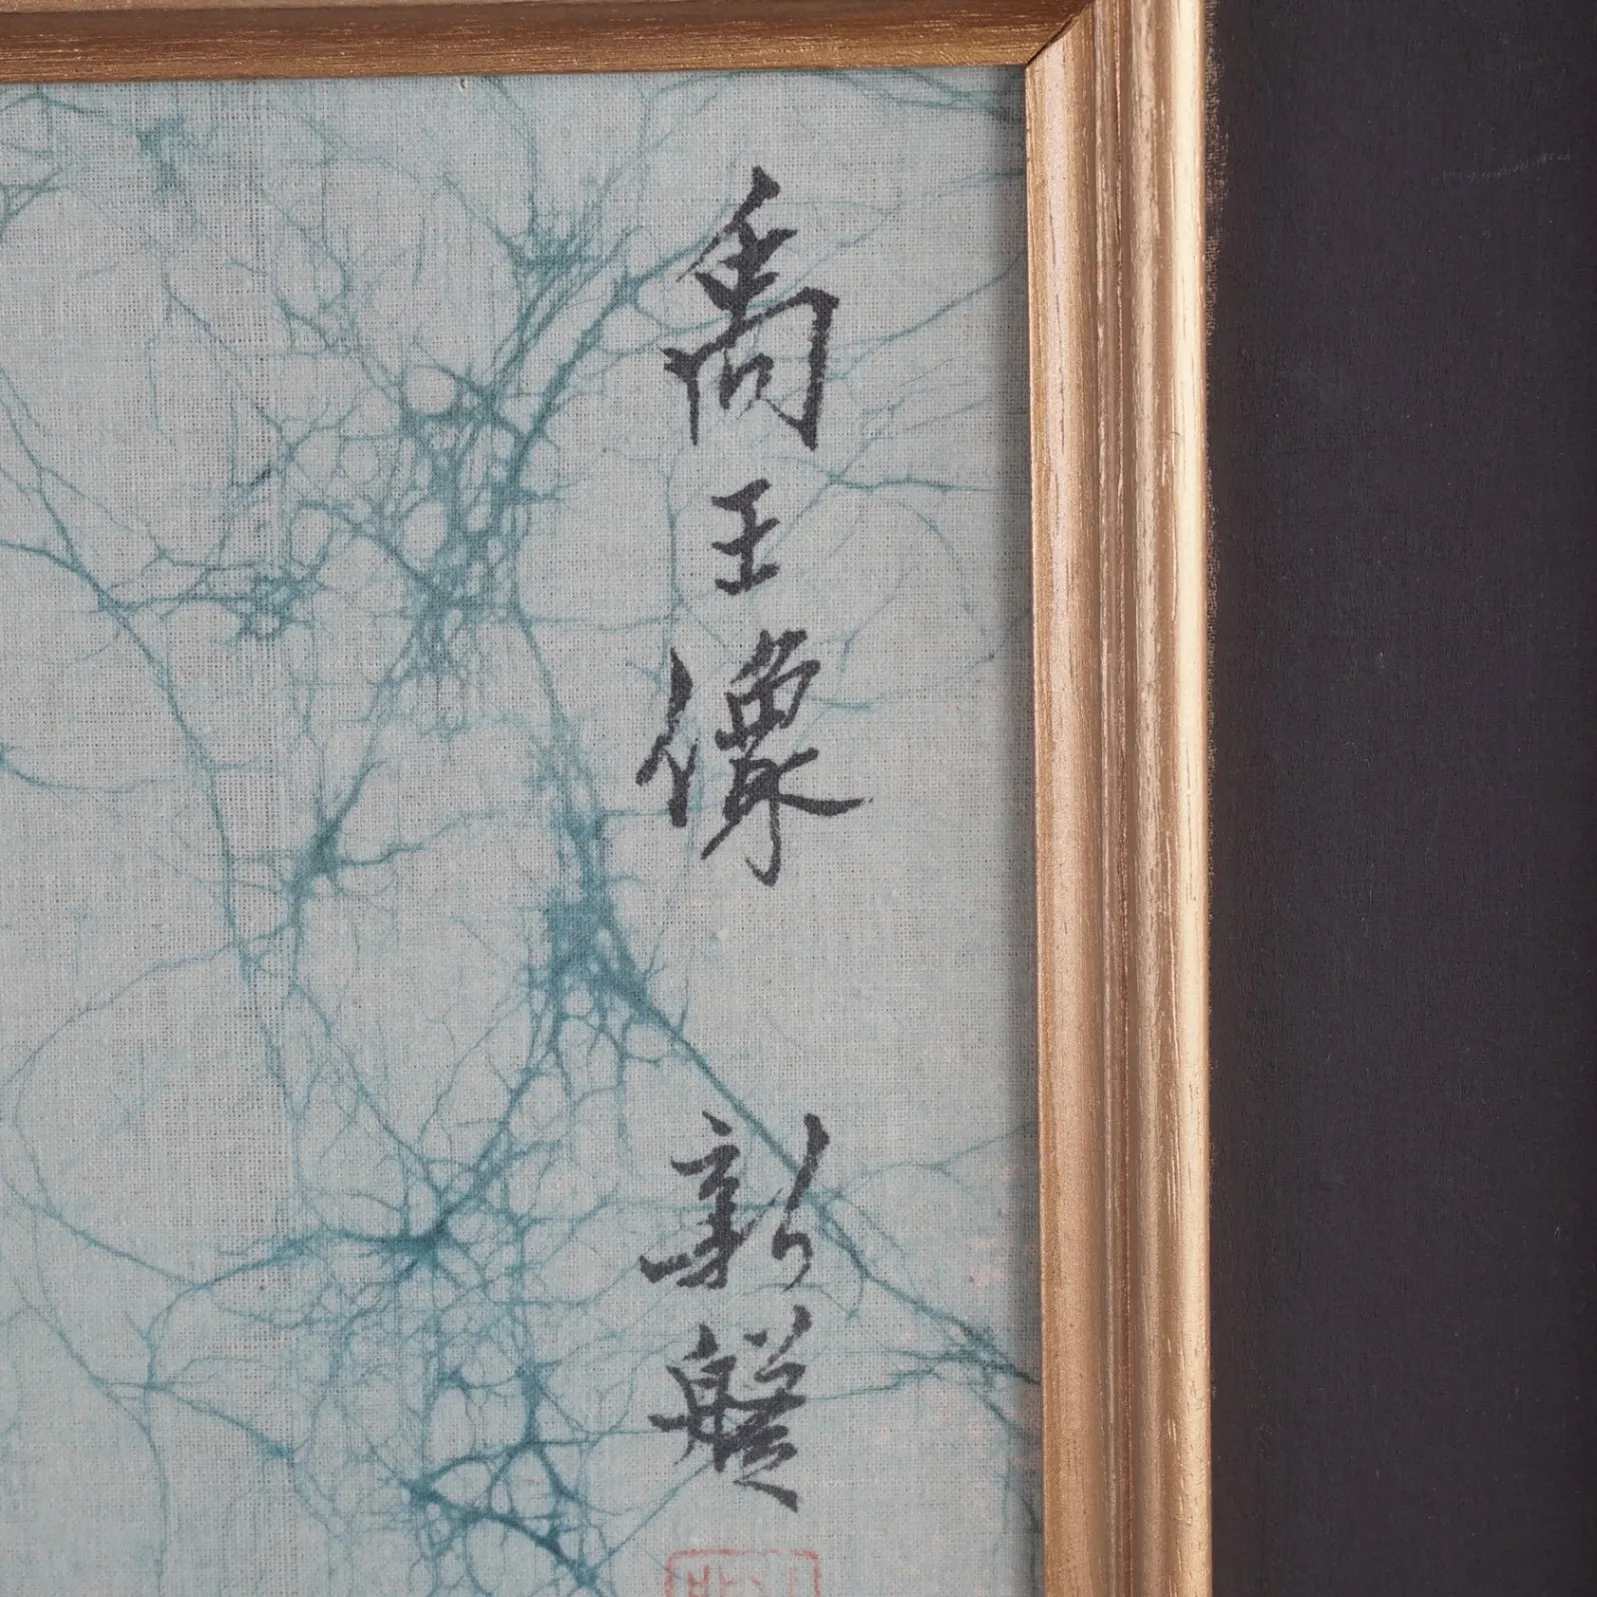 禹王像
新